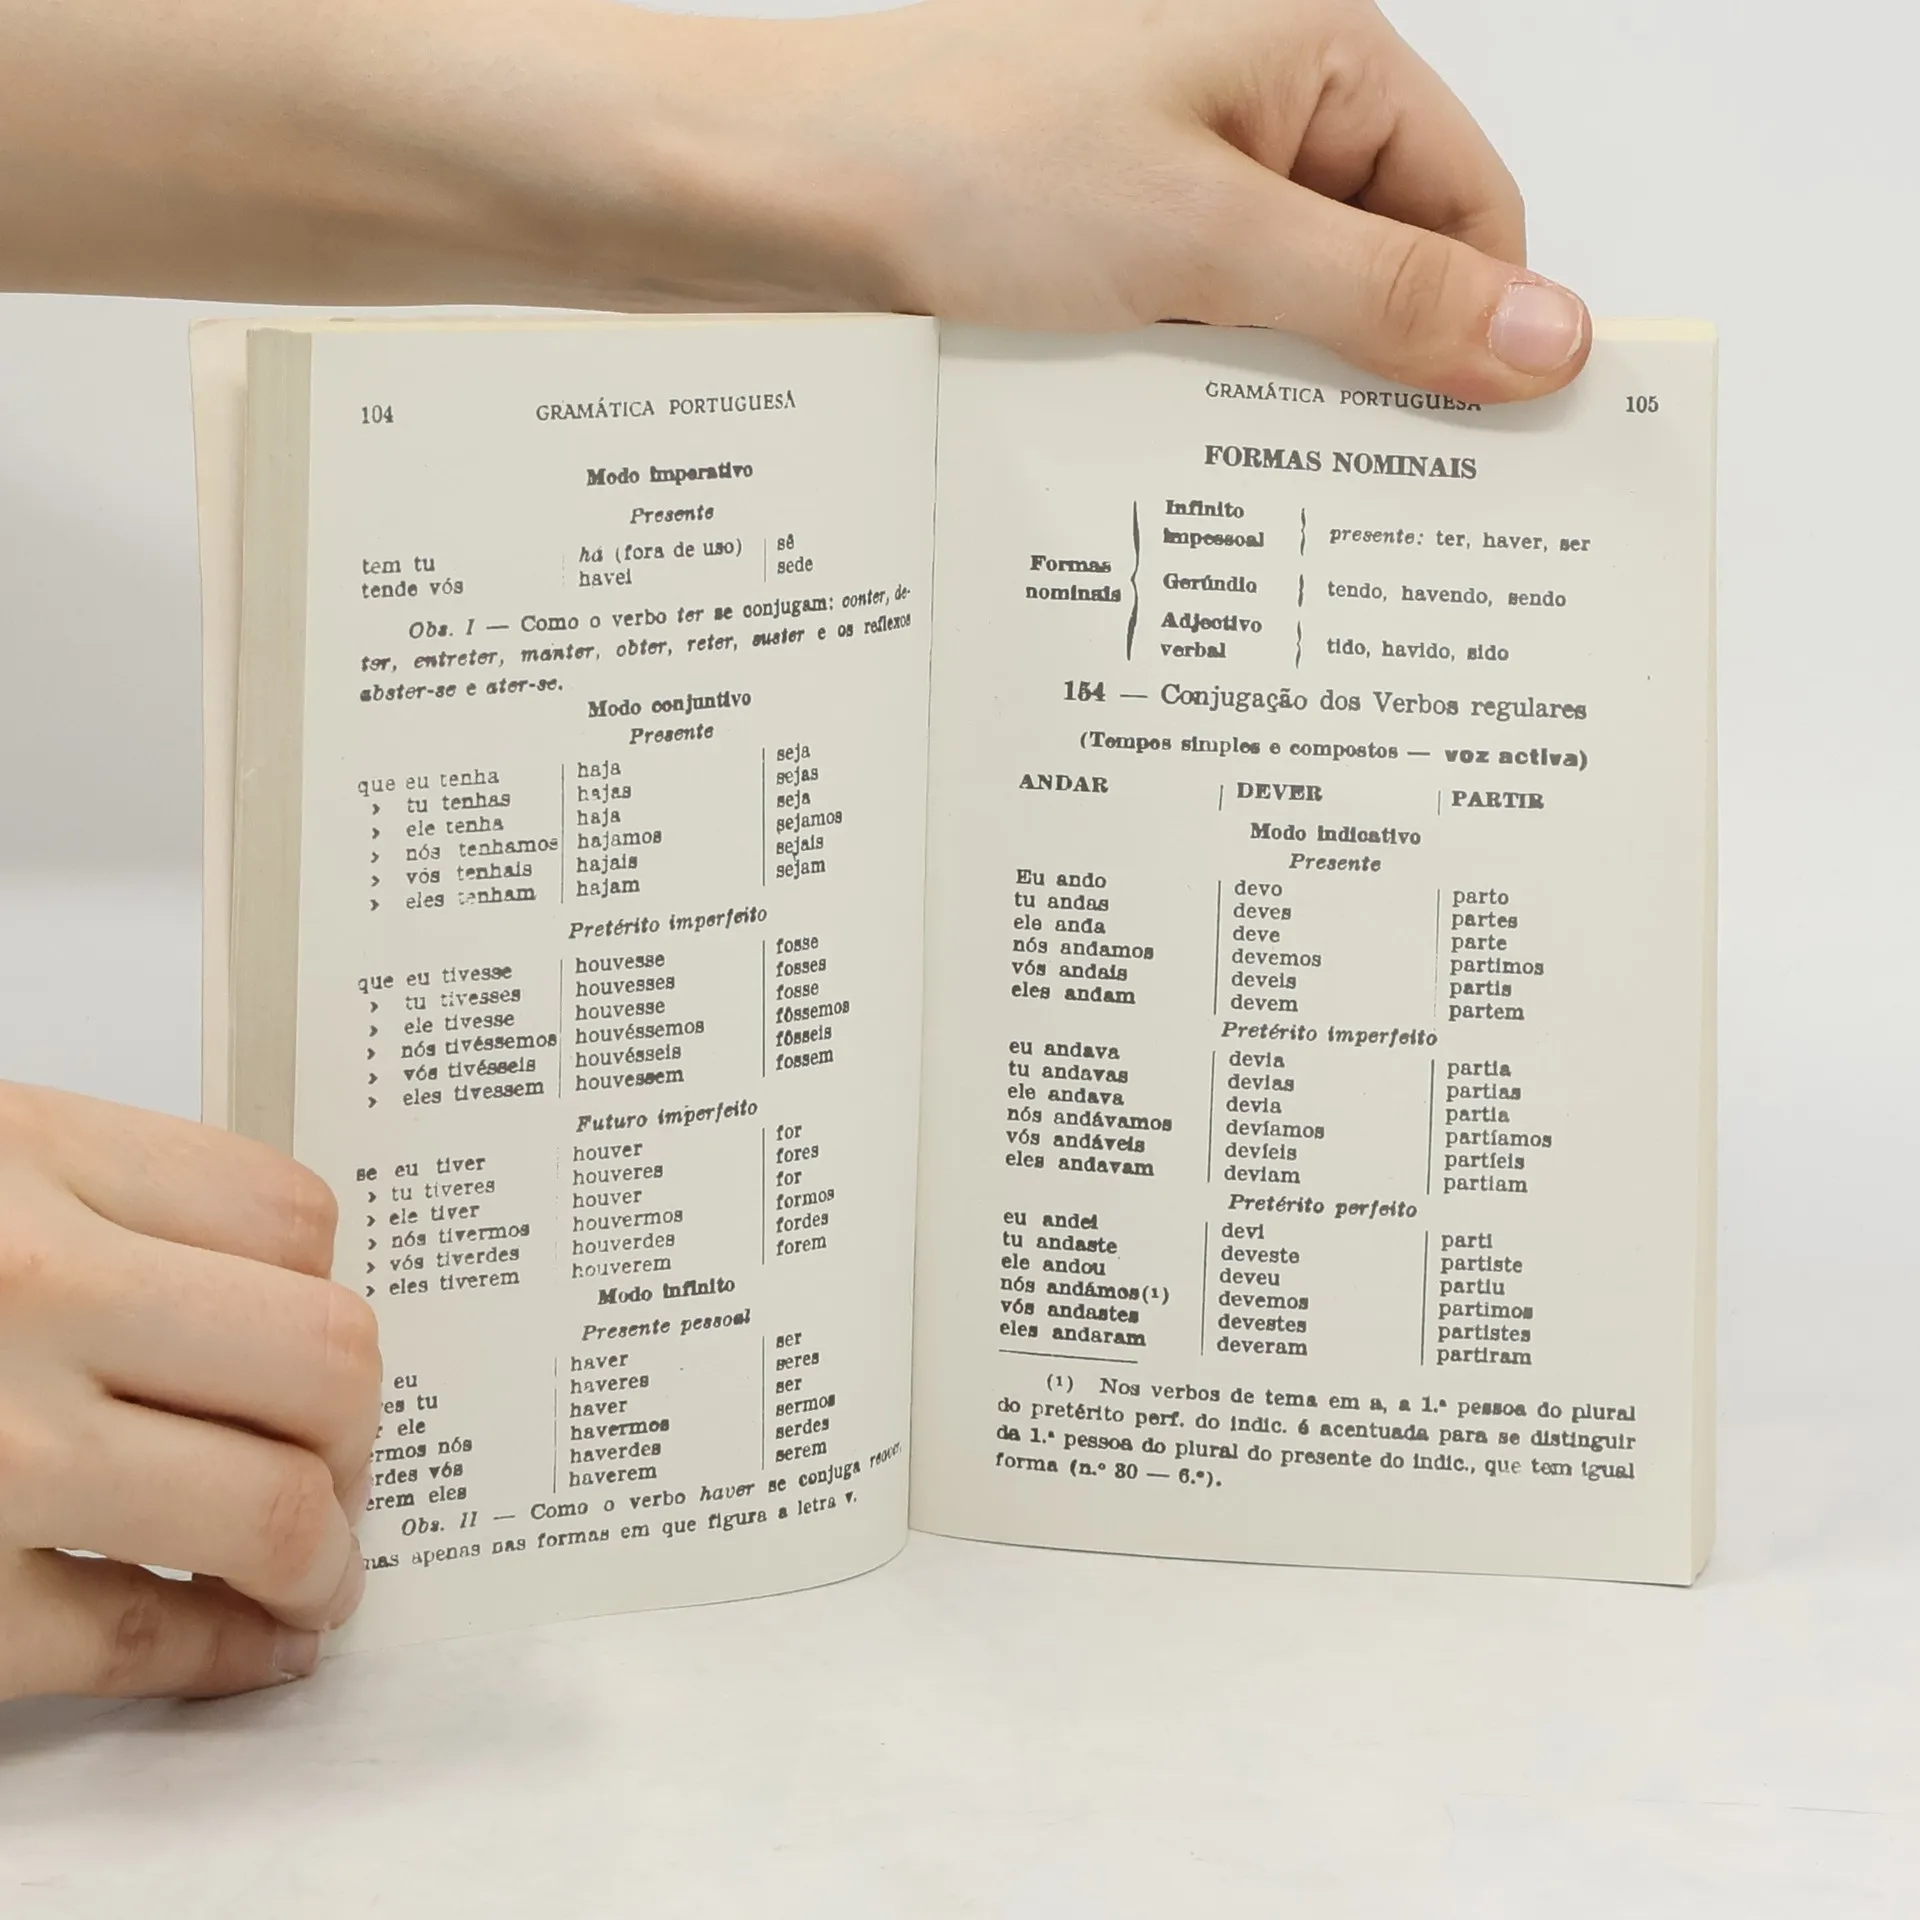 104 GRAMÁTICA PORTUGUESA
Modo imperativo
Presente
tem tu há (fora de uso) sê
tende vós havei sede
Obs. I — Como o verbo ter se conjugam: conter, de-
ter, entreter, manter, obter, reter, suster e os reflexos
abster-se e ater-se.
Modo conjuntivo
Presente
que eu tenha haja seja
› tu tenhas hajas sejas
› ele tenha haja seja
› nós tenhamos hajamos sejamos
› vós tenhais hajais sejais
› eles tenham hajam sejam
Pretérito imperfeito
que eu tivesse houvesse fosse
› tu tivesses houvesses fosses
› ele tivesse houvesse fosse
› nós tivéssemos houvéssemos fôssemos
› vós tivésseis houvésseis fôsseis
› eles tivessem houvessem fossem
Futuro imperfeito
se eu tiver houver for
› tu tiveres houveres fores
› ele tiver houver for
› nós tivermos houvermos formos
› vós tiverdes houverdes fordes
› eles tiverem houverem forem
Modo infinito
Presente pessoal
eu haver ser
es tu haveres seres
ele haver ser
ermos nós havermos sermos
rdes vós haverdes serdes
erem eles haverem serem
Obs. II — Como o verbo haver se conjuga reaver,
mas apenas nas formas em que figura a letra v.
GRAMÁTICA PORTUGUESA 105
FORMAS NOMINAIS
Formas
nominais
Infinito
impessoal presente: ter, haver, ser
Gerúndio tendo, havendo, sendo
Adjectivo
verbal tido, havido, sido
154 — Conjugação dos Verbos regulares
(Tempos simples e compostos — voz activa)
ANDAR DEVER PARTIR
Modo indicativo
Presente
Eu ando devo parto
tu andas deves partes
ele anda deve parte
nós andamos devemos partimos
vós andais deveis partis
eles andam devem partem
Pretérito imperfeito
eu andava devia partia
tu andavas devias partias
ele andava devia partia
nós andávamos devíamos partíamos
vós andáveis devíeis partíeis
eles andavam deviam partiam
Pretérito perfeito
eu andei devi parti
tu andaste deveste partiste
ele andou deveu partiu
nós andámos(¹) devemos partimos
vós andastes devestes partistes
eles andaram deveram partiram
(¹) Nos verbos de tema em a, a 1.ª pessoa do plural
do pretérito perf. do indic. é acentuada para se distinguir
da 1.ª pessoa do plural do presente do indic., que tem igual
forma (n.º 30 — 6.º).